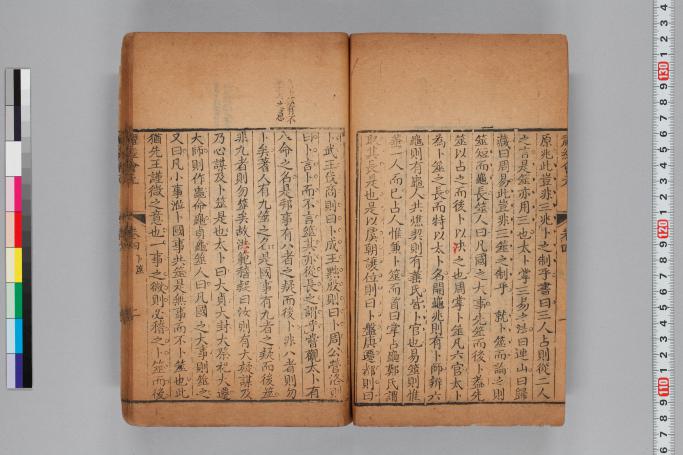 原兆此豈非三兆卜之制乎書曰三人占則從二人
之言是筮亦用三也太卜掌三易之法曰連山曰歸
藏曰周易此豈非三筮之制乎就卜筮而論之則
筮短而龜長筮人曰凡國之大事先筮而後卜蓋先
筮以占之而後卜以决之也周掌卜筮凡六官太卜
為卜筮之長而特以太卜名開龜兆則有卜師辨六
龜則有龜人共燋契則有菙氏皆卜官也易筮則惟
簭人而已占人惟兼卜筮而首曰掌占龜鄭氏謂
取其長是也是以虞朝讓位則曰卜盤庚遷都則曰
卜武王伐商則曰卜成王黜殷則曰卜周公營洛則
曰卜言卜而不言筮其亦從長之謂乎嘗觀太卜有
八命之名是邦事有八者之疑而後卜非八者則勿
卜矣簭人有九筮之名是國事有九者之疑而後筮
非九者則勿筮矣故洪範稽疑曰汝則有大疑謀及
乃心謀及卜筮是也太卜曰大貞大封大祭祀大遷
大師則作龜命龜貞龜筮人曰凡國之大事則筮之
又曰凡小事涖卜國事共筮是無事而不卜筮也此
猶先王謹微之意也一事之微則必稽之卜筮而後